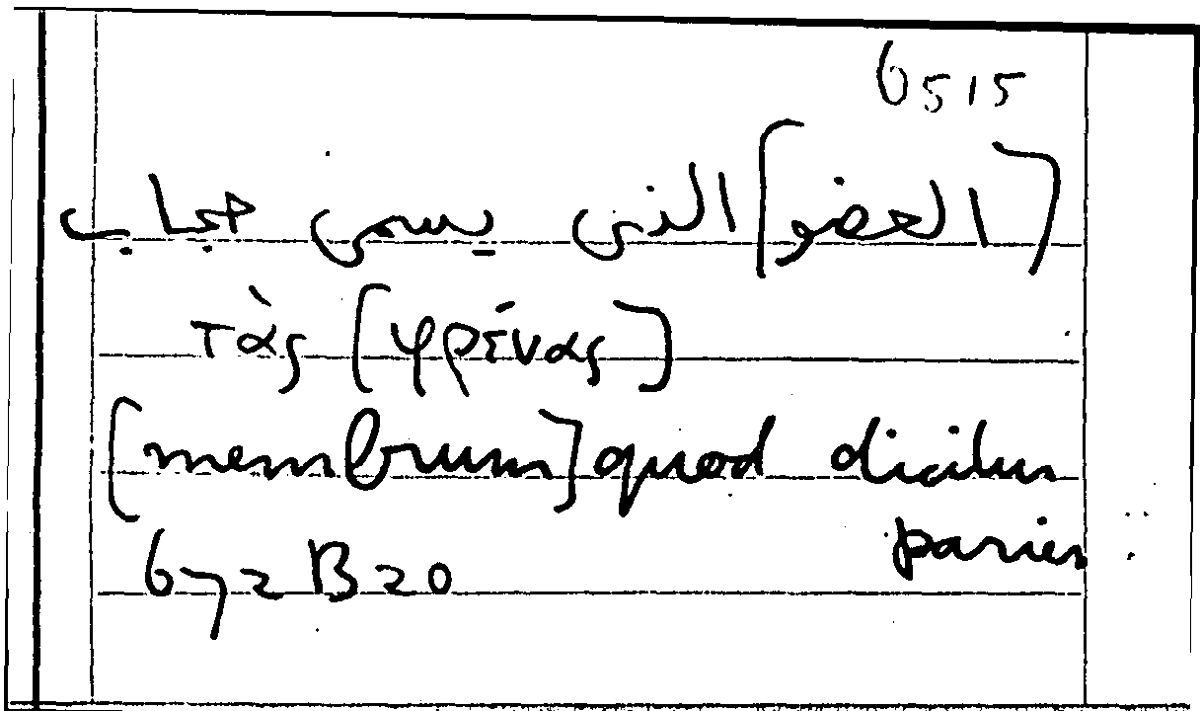 6515
[العضو] الذى يسمى حجاب
τὰς [φρένας]
[membrum] quod dicitur
paries
672 B 20